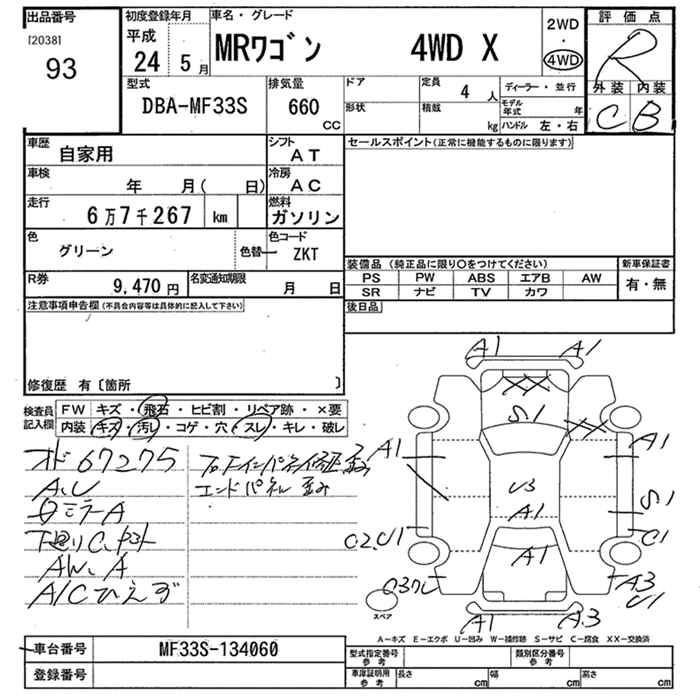 出品番号
[2038]
93
初度登録年月
平成
24 5月
車名・グレード
MRワゴン 4WD X
2WD
・
4WD
評価点
R
外装 内装
C B
型式
DBA-MF33S
排気量
660
CC
ドア
形状
定員
4人
積載
kg
ディーラー・並行
モデル年式 年
ハンドル 左・右
車歴
自家用
シフト
AT
セールスポイント(正常に機能するものに限ります)
車検
年 月( 日)
冷房
AC
走行
6万7千267 km
燃料
ガソリン
色
グリーン
色替
色コード
ZKT
装備品 (純正品に限り○をつけてください)
新車保証書
PS PW ABS エアB AW
SR ナビ TV カワ
有・無
R券
9,470円
名変通知期限
月 日
後日品
注意事項申告欄(不具合内容等は具体的に記入して下さい)
修復歴 有〔箇所 〕
検査員記入欄
FW キズ・飛石・ヒビ割・リペア跡・×要
内装 キズ・汚レ・コゲ・穴・スレ・キレ・破レ
オド67275
A.U
白ミラーA
下廻りC,ヤネト
AW.A
A/Cひえず
エンドパネル 歪み
A1 A1
S1
A1 A1
U3
A1
S1
C2.U1 C1
A1
A3
U1
A1 A3
スペア
A-キズ E-エクボ U-凹み W-補修跡 S-サビ C-腐食 XX-交換済
車台番号
MF33S-134060
登録番号
型式指定番号
参考
類別区分番号
参考
車庫証明用
参考
長さ cm 幅 cm 高さ cm